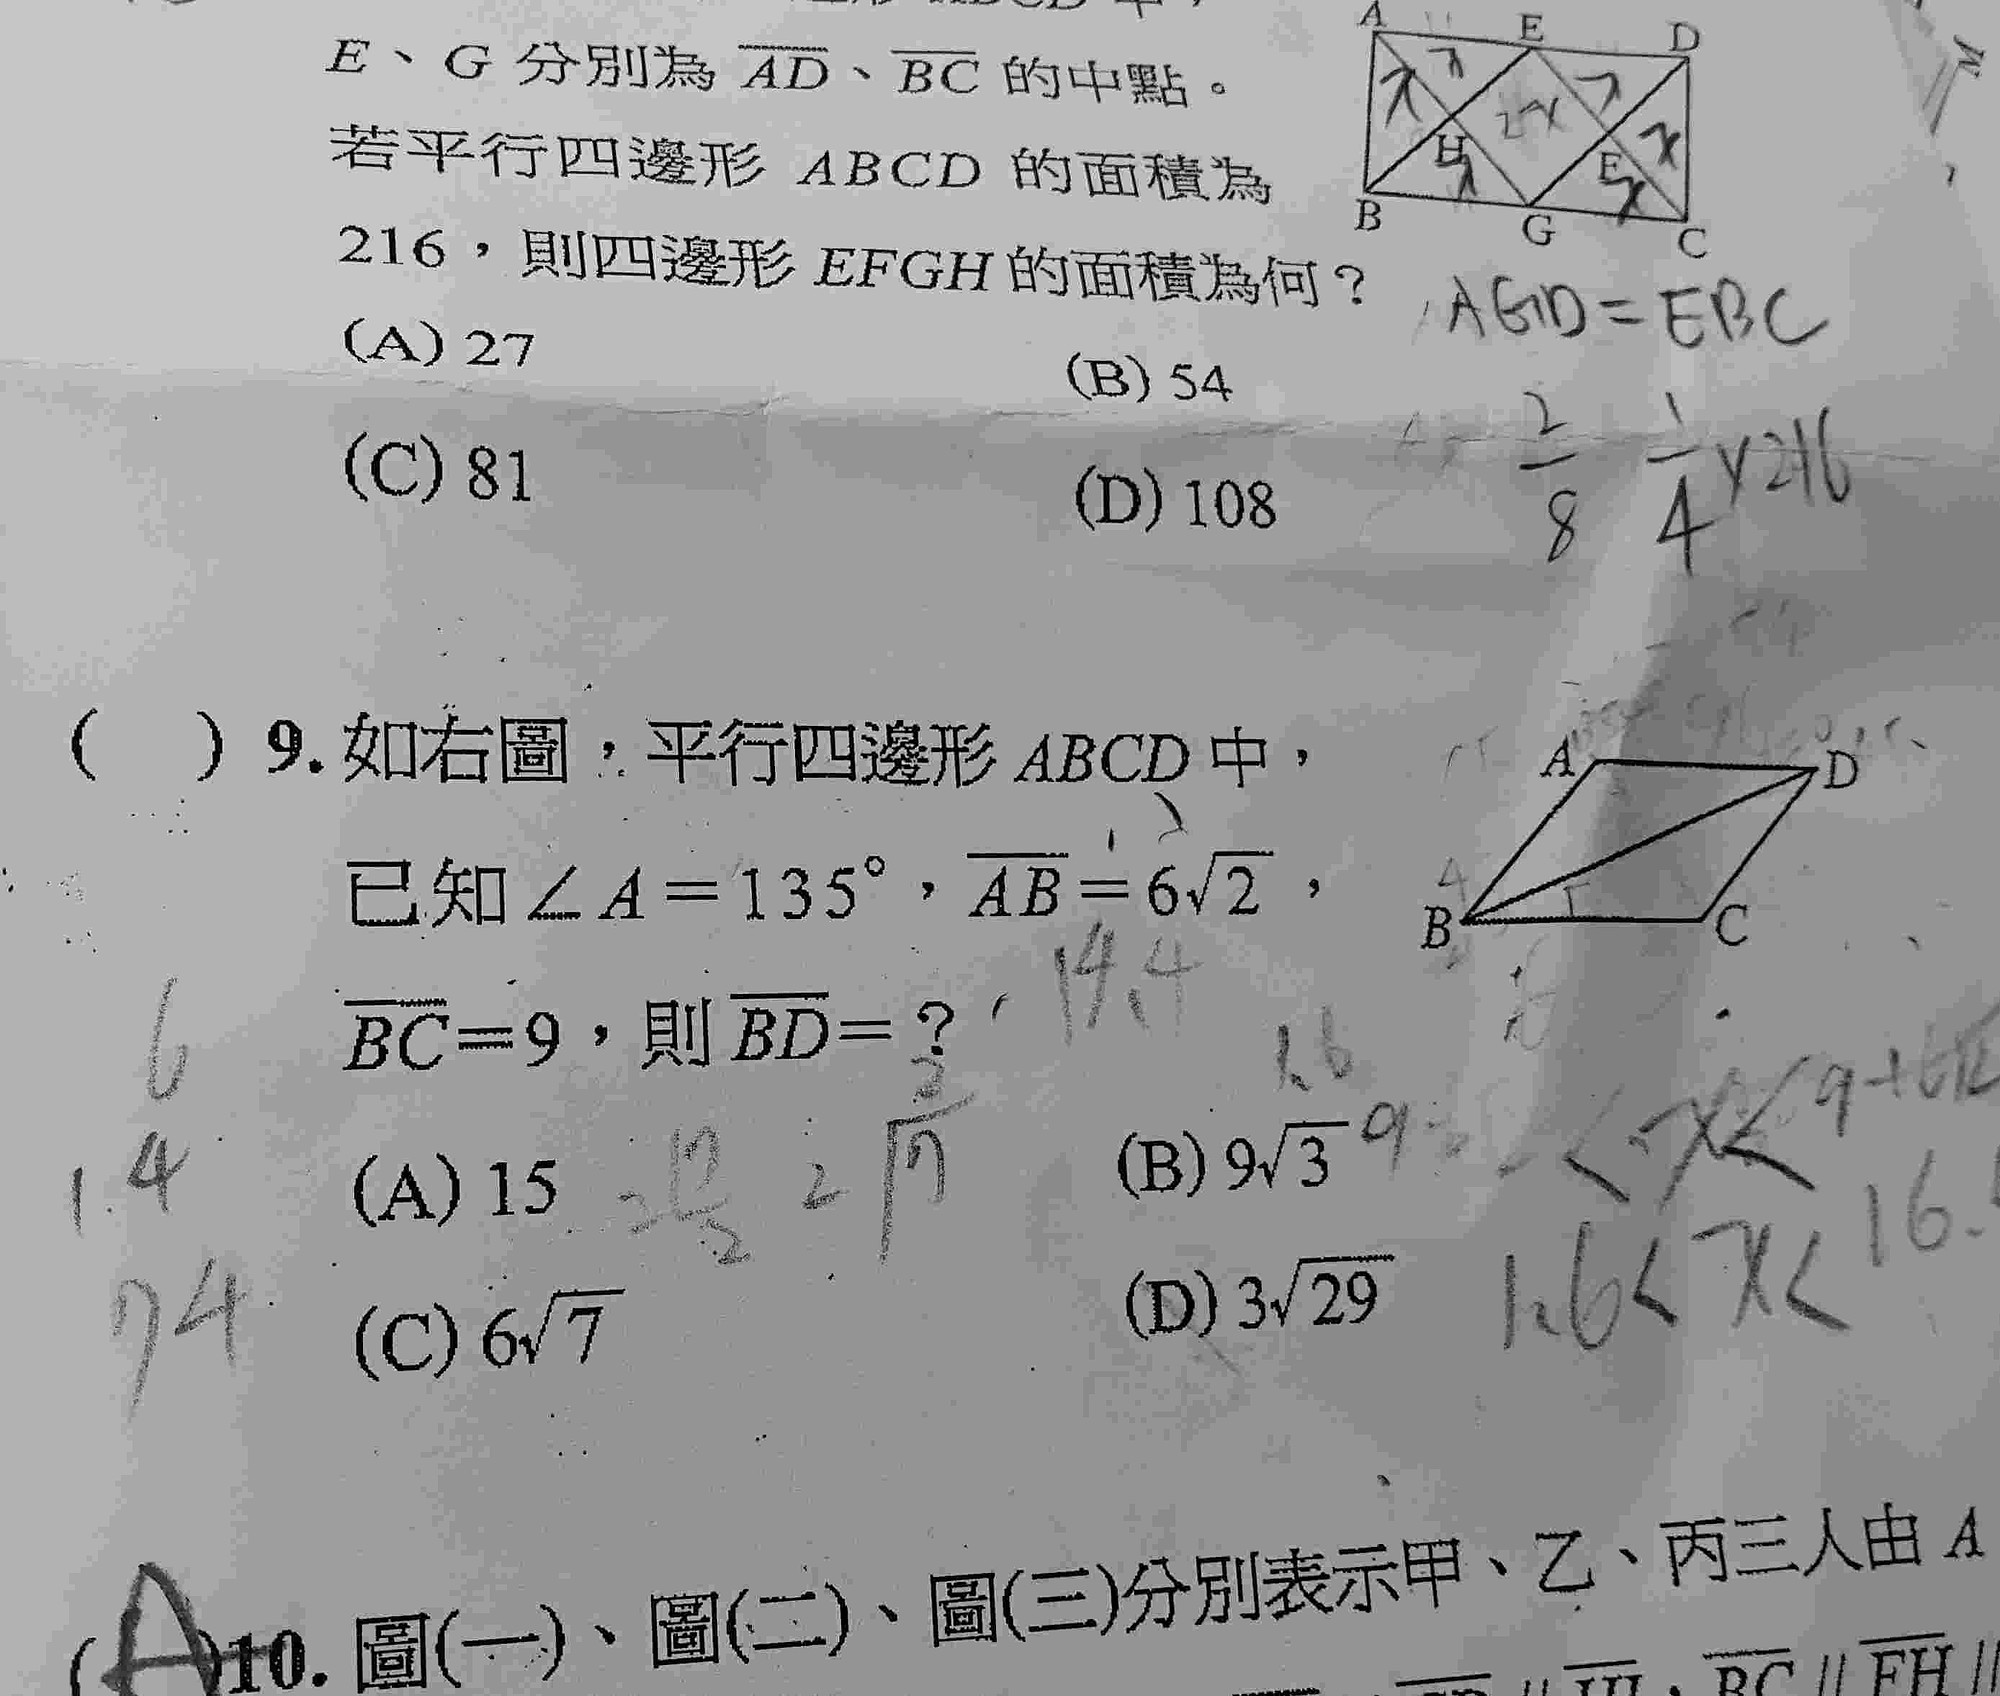 E、G 分別為 AD、BC 的中點。
若平行四邊形 ABCD 的面積為
216,則四邊形 EFGH 的面積為何?
(A) 27
(B) 54
(C) 81
(D) 108
A E D
H F
B G C
AGD=EBC
2/8 1/4×216
( ) 9. 如右圖,平行四邊形 ABCD 中,
已知∠A=135°,AB=6√2,
BC=9,則 BD=?
(A) 15
(B) 9√3
(C) 6√7
(D) 3√29
A D
B C
14.4
1.6
1.6<x<16.
6
1.4
74
(A)10. 圖(一)、圖(二)、圖(三)分別表示甲、乙、丙三人由 A
BC // FH //